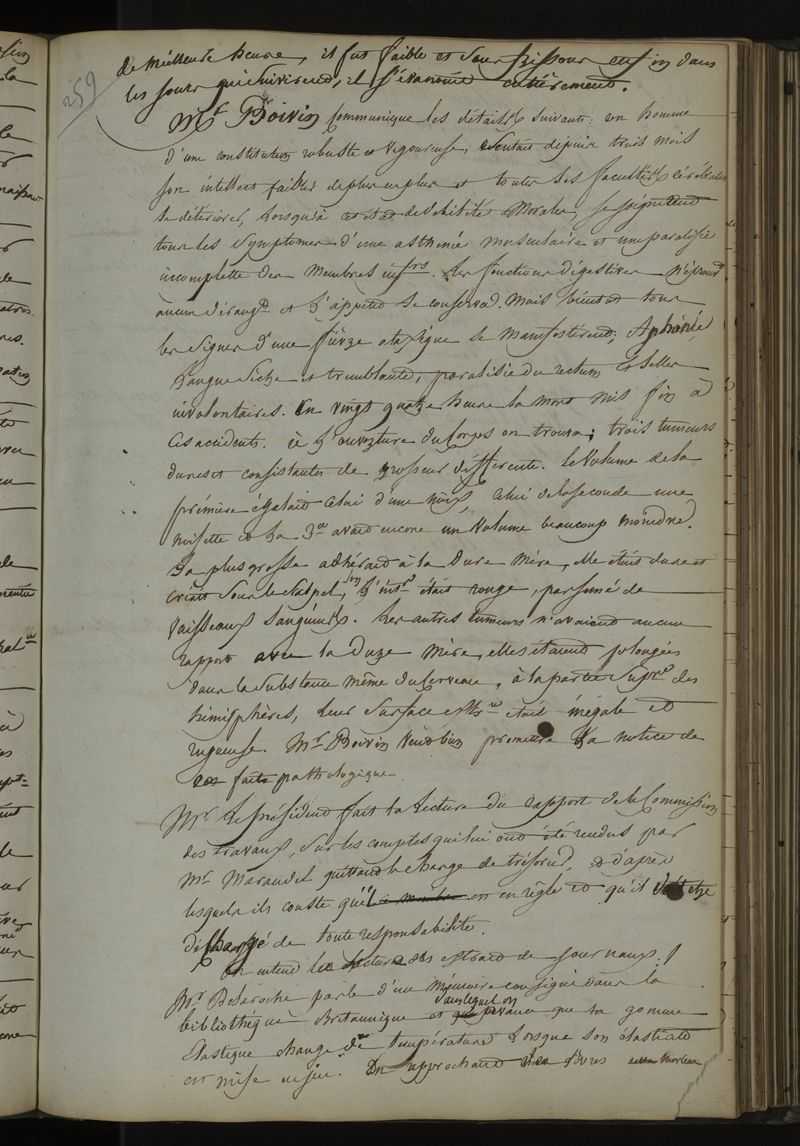 259
de meilleure heure, il fut faible et sans frissons enfin dans
les jours qui suivirent, il s'évanouit entièrement.
Mr Boivin communique les détails suivants: un homme
d'une constitution robuste et vigoureuse, sentait depuis trois mois
son intellect faiblir de plus en plus et toutes ses facultés cérébrales
se détériorer, Lorsqu'à cet état de débilité morale, se joignirent
tous les symptomes d'une asthenie musculaire et une paralisie
incomplette des membres infrs. Les fonctions digestives n'éprouvt
aucun dérangt et l'appetit se conservad. Mais bientot tous
les signes d'une fièvre ataxique se manifestèrent; Aphonie,
Langue sèche et tremblante, paralisie du rectum et selles
involontaires. En vingt quatre heure la mort mit fin à
ces accidents. à l'ouverture du corps on trouva; trois tumeurs
dures et consistantes de grosseur différente. le volume de la
première égalait celui d'une noix celui de la seconde une
noisette et la 3e avait encore un volume beaucoup moindre.
La plus grosse adhérait à la dure mère, elle était dure et
criait sous le scalpel, son l'intr était rouge, parsumé de
vaisseaux sanguins. Les autres tumeurs n'avaient aucun
rapport avec la dure mère, elles étaient prolongées
dans la substance même du cerveau, à la partie supre des
hémisphères, leur surface extre était inégale et
rugueuse. Mr Boivin veut bien promettre la notice de
ces faits pathologiques.
Mr le président fait la lecture du rapport de la Commission
des travaux, sur les comptes qui lui ont été rendus par
Mr Marandel quittant la charge de trésorier, et d'après
lesquels ils conste qu'il est en règle et qu'il doit etre
déchargé de toute responsabilité.
On entend la lecture des extraits de journaux.
Mr Delaroche parle d'un mémoire consigné dans la
bibliothèque Britannique et dans lequel on avance que la gomme
Elastique change de température lorsque son élasticité
est mise en jeu. En approchant des lèvres un morceau